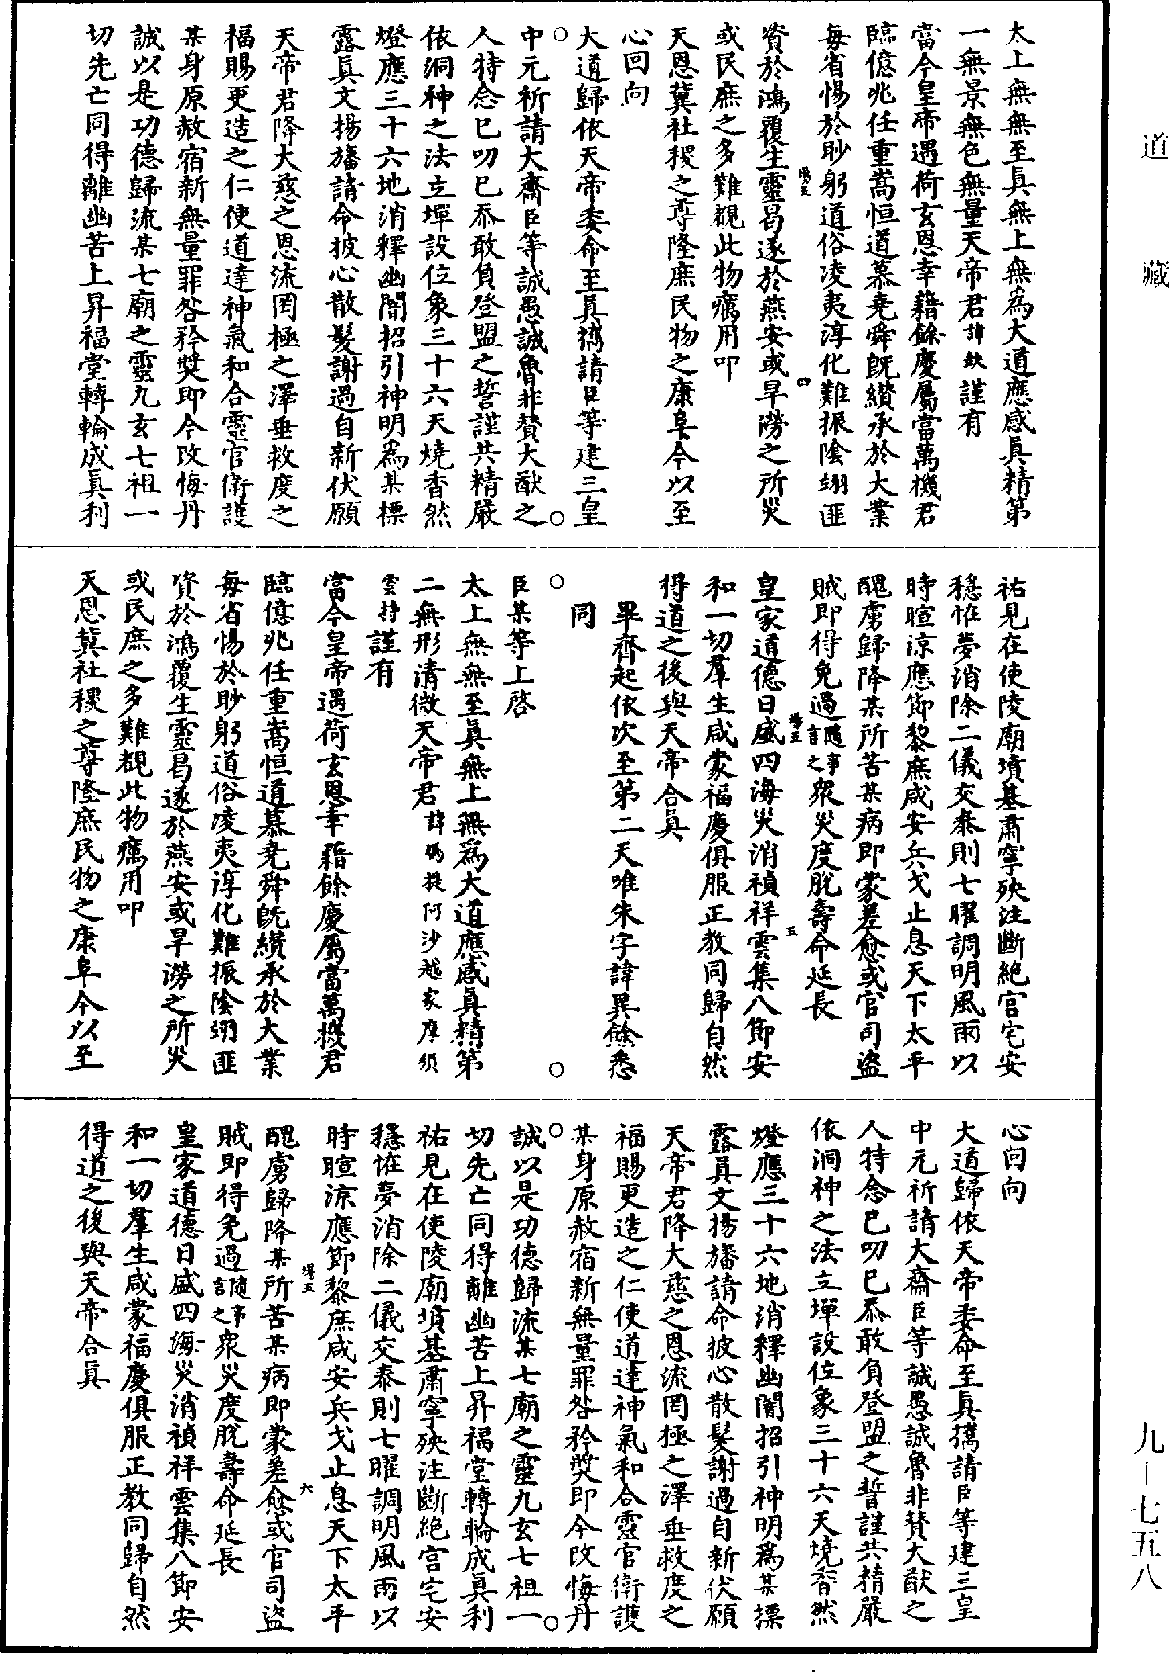 道藏
太上無無至眞無上無爲大道應感眞精第
一無景無色無量天帝君諱缺謹有
當今皇帝遇荷玄恩幸藉餘慶屬當萬機君
臨億兆任重嵩恒道慕堯舜旣纘承於大業
每省惕於眇躬道俗凌夷淳化難振陰翊匪
資於鴻覆生靈曷遂於燕安或旱澇之所災
或民庶之多難觀此物癘用叩
天恩冀社稷之尊隆庶民物之康阜今以至
心回向
大道歸依天帝委命至眞攜請臣等建三皇
中元祈請大齋臣等誠愚誠魯非贊大猷之
人特念已叨已忝敢負登盟之誓謹共精嚴
依洞神之法立墠設位象三十六天燒香然
燈應三十六地消釋幽闇招引神明爲某標
露眞文揚旛請命披心散髮謝過自新伏願
天帝君降大慈之恩流罔極之澤垂救度之
福賜更造之仁使道達神氣和合靈官衛護
某身原赦宿新無量罪咎矜奬即今改悔丹
誠以是功德歸流某七廟之靈九玄七祖一
切先亡同得離幽苦上昇福堂轉輪成眞利
祐見在使陵廟墳基肅寧殃注斷絕官宅安
穩恠夢消除二儀交泰則七曜調明風雨以
時暄涼應節黎庶咸安兵戈止息天下太平
醜虜歸降某所苦某病即蒙差愈或官司盜
賊即得免過隨事言之衆災度脫壽命延長
皇家道德日盛四海災消禎祥雲集八節安
和一切羣生咸蒙福慶俱服正教同歸自然
得道之後與天帝合眞
畢齊起依次至第二天唯朱字諱異餘悉
同
臣某等上啓
太上無無至眞無上無爲大道應感眞精第
二無形清微天帝君諱碼提阿沙越家摩須
雲持謹有
當今皇帝遇荷玄恩幸藉餘慶屬當萬機君
臨億兆任重嵩恒道慕堯舜旣纘承於大業
每省惕於眇躬道俗凌夷淳化難振陰翊匪
資於鴻覆生靈曷遂於燕安或旱澇之所災
或民庶之多難觀此物癘用叩
天恩冀社稷之尊隆庶民物之康阜今以至
心回向
大道歸依天帝委命至眞攜請臣等建三皇
中元祈請大齋臣等誠愚誠魯非贊大猷之
人特念已叨已忝敢負登盟之誓謹共精嚴
依洞神之法立墠設位象三十六天境香然
燈應三十六地消釋幽闇招引神明爲某標
露眞文揚旛請命披心散髮謝過自新伏願
天帝君降大慈之恩流罔極之澤垂救度之
福賜更造之仁使道達神氣和合靈官衛護
某身原赦宿新無量罪咎矜奬即今改悔丹
誠以是功德歸流某七廟之靈九玄七祖一
切先亡同得離幽苦上昇福堂轉輪成眞利
祐見在使陵廟墳基肅寧殃注斷絕宮宅安
穩恠夢消除二儀交泰則七曜調明風雨以
時暄涼應節黎庶咸安兵戈止息天下太平
醜虜歸降某所苦某病即蒙差愈或官司盜
賊即得免過隨事言之衆災度脫壽命延長
皇家道德日盛四海災消禎祥雲集八節安
和一切羣生咸蒙福慶俱服正教同歸自然
得道之後與天帝合眞
九－七五八